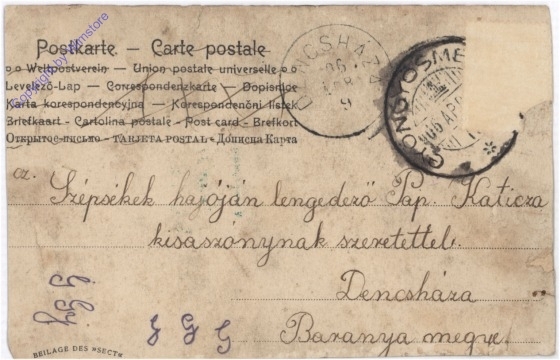 Postkarte — Carte postale
Weltpostverein — Union postale universelle
Levelező-Lap — Correspondenzkarte — Dopisnice
Karta korespondencyjna — Korespondenční lístek
Briefkaart - Cartolina postale - Post card - Brefkort
Открытое-письмо - TARJETA POSTAL - Дописна Карта
GYÖNGYÖSME
906 APR
cz. Szépsékek hajóján lengedező Pap. Katicza
kisaszónynak szeretettel.
Dencsháza
Baranya megye.
BEILAGE DES »SECT«